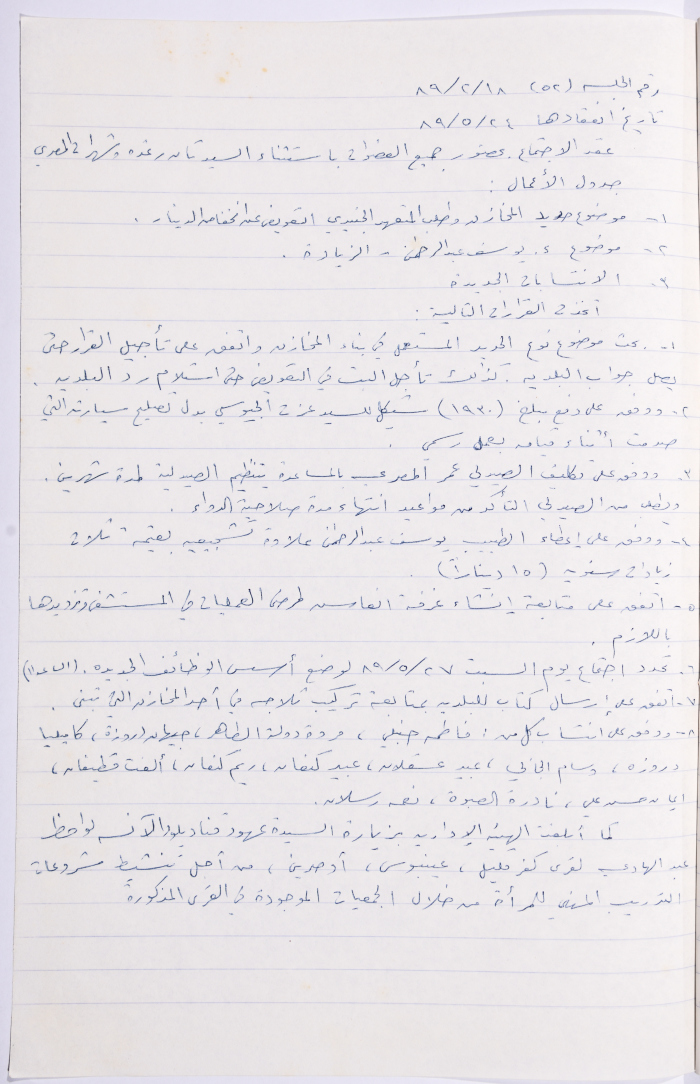 رقم الجلسه (٥٢) ٨٩/٢/١٨
تاريخ انعقادها ٨٩/٥/٢٤
عقد الاجتماع بحضور جميع العضوات باستثناء السيدتان رغده وشهرات المصري
جدول الأعمال :
١- موضوع حديد المخازن وطلب المتعهد الجنيدي التعويض عن انخفاض الدينار .
٢- موضوع د. يوسف عبدالرحمن - الزيادة .
٣. الانتسابات الجديدة
أتخذت القرارات التالية :
١- بحث موضوع نوع الحديد المستعمل في بناء المخازن واتفق على تأجيل القرار حتى
يصل جواب البلديه . كذلك تأجل البت في التعويض حتى استلام رد البلديه .
٢. ووفق على دفع مبلغ (١٩٣٠) شيكل للسيد عزت الجيوسي بدل تصليح سيارته التي
صدمت أثناء قيامه بعمل رسمي .
٣. ووفق على تكليف الصيدلي عمر المصري بالمساعدة بتنظيم الصيدلية لمدة شهرين .
وطلب من الصيدلي التأكد من مواعيد انتهاء مدة صلاحية الدواء .
٤- ووفق على إعطاء الطبيب يوسف عبدالرحمن علاوة تشجيعيه بقيمة ثلاث
زيادات سنويه (١٥ ديناراً) .
٥- اتفق على متابعة إنشاء غرفة لمرضى العمليات في المستشفى وتزويدها
باللازم .
٦. تحدد اجتماع يوم السبت ٨٩/٥/٢٧ لوضع أسس الوظائف الجديده . (الساعه ١١)
٧- اتفق على إرسال كتاب للبلديه بمتابعة تركيب ثلاجه في أحد المخازن التي تبنى .
٨- ووفق على انتساب كل من : فاطمه حنبلي ، مروة دولة الطاهر ، جيهان دروزة ، كاميليا
دروزه ، وسام الجابي ، عبير عسقلان ، عبير كنعان ، ريم كنعان ، ألفت قطيفان ،
ايمان حسن علي ، نادرة الصبوة ، نعمه رسلان .
كما أبلغت الهيئه الإداريه بزيارة السيدة عهود قناديلو والآنسه لواحظ
عبد الهادي لقرى كفر قليل ، عينبوس ، أودحرين ، من أجل تنشيط مشروعات
التدريب المهني للمرأة من خلال الجمعيات الموجودة في القرى المذكورة